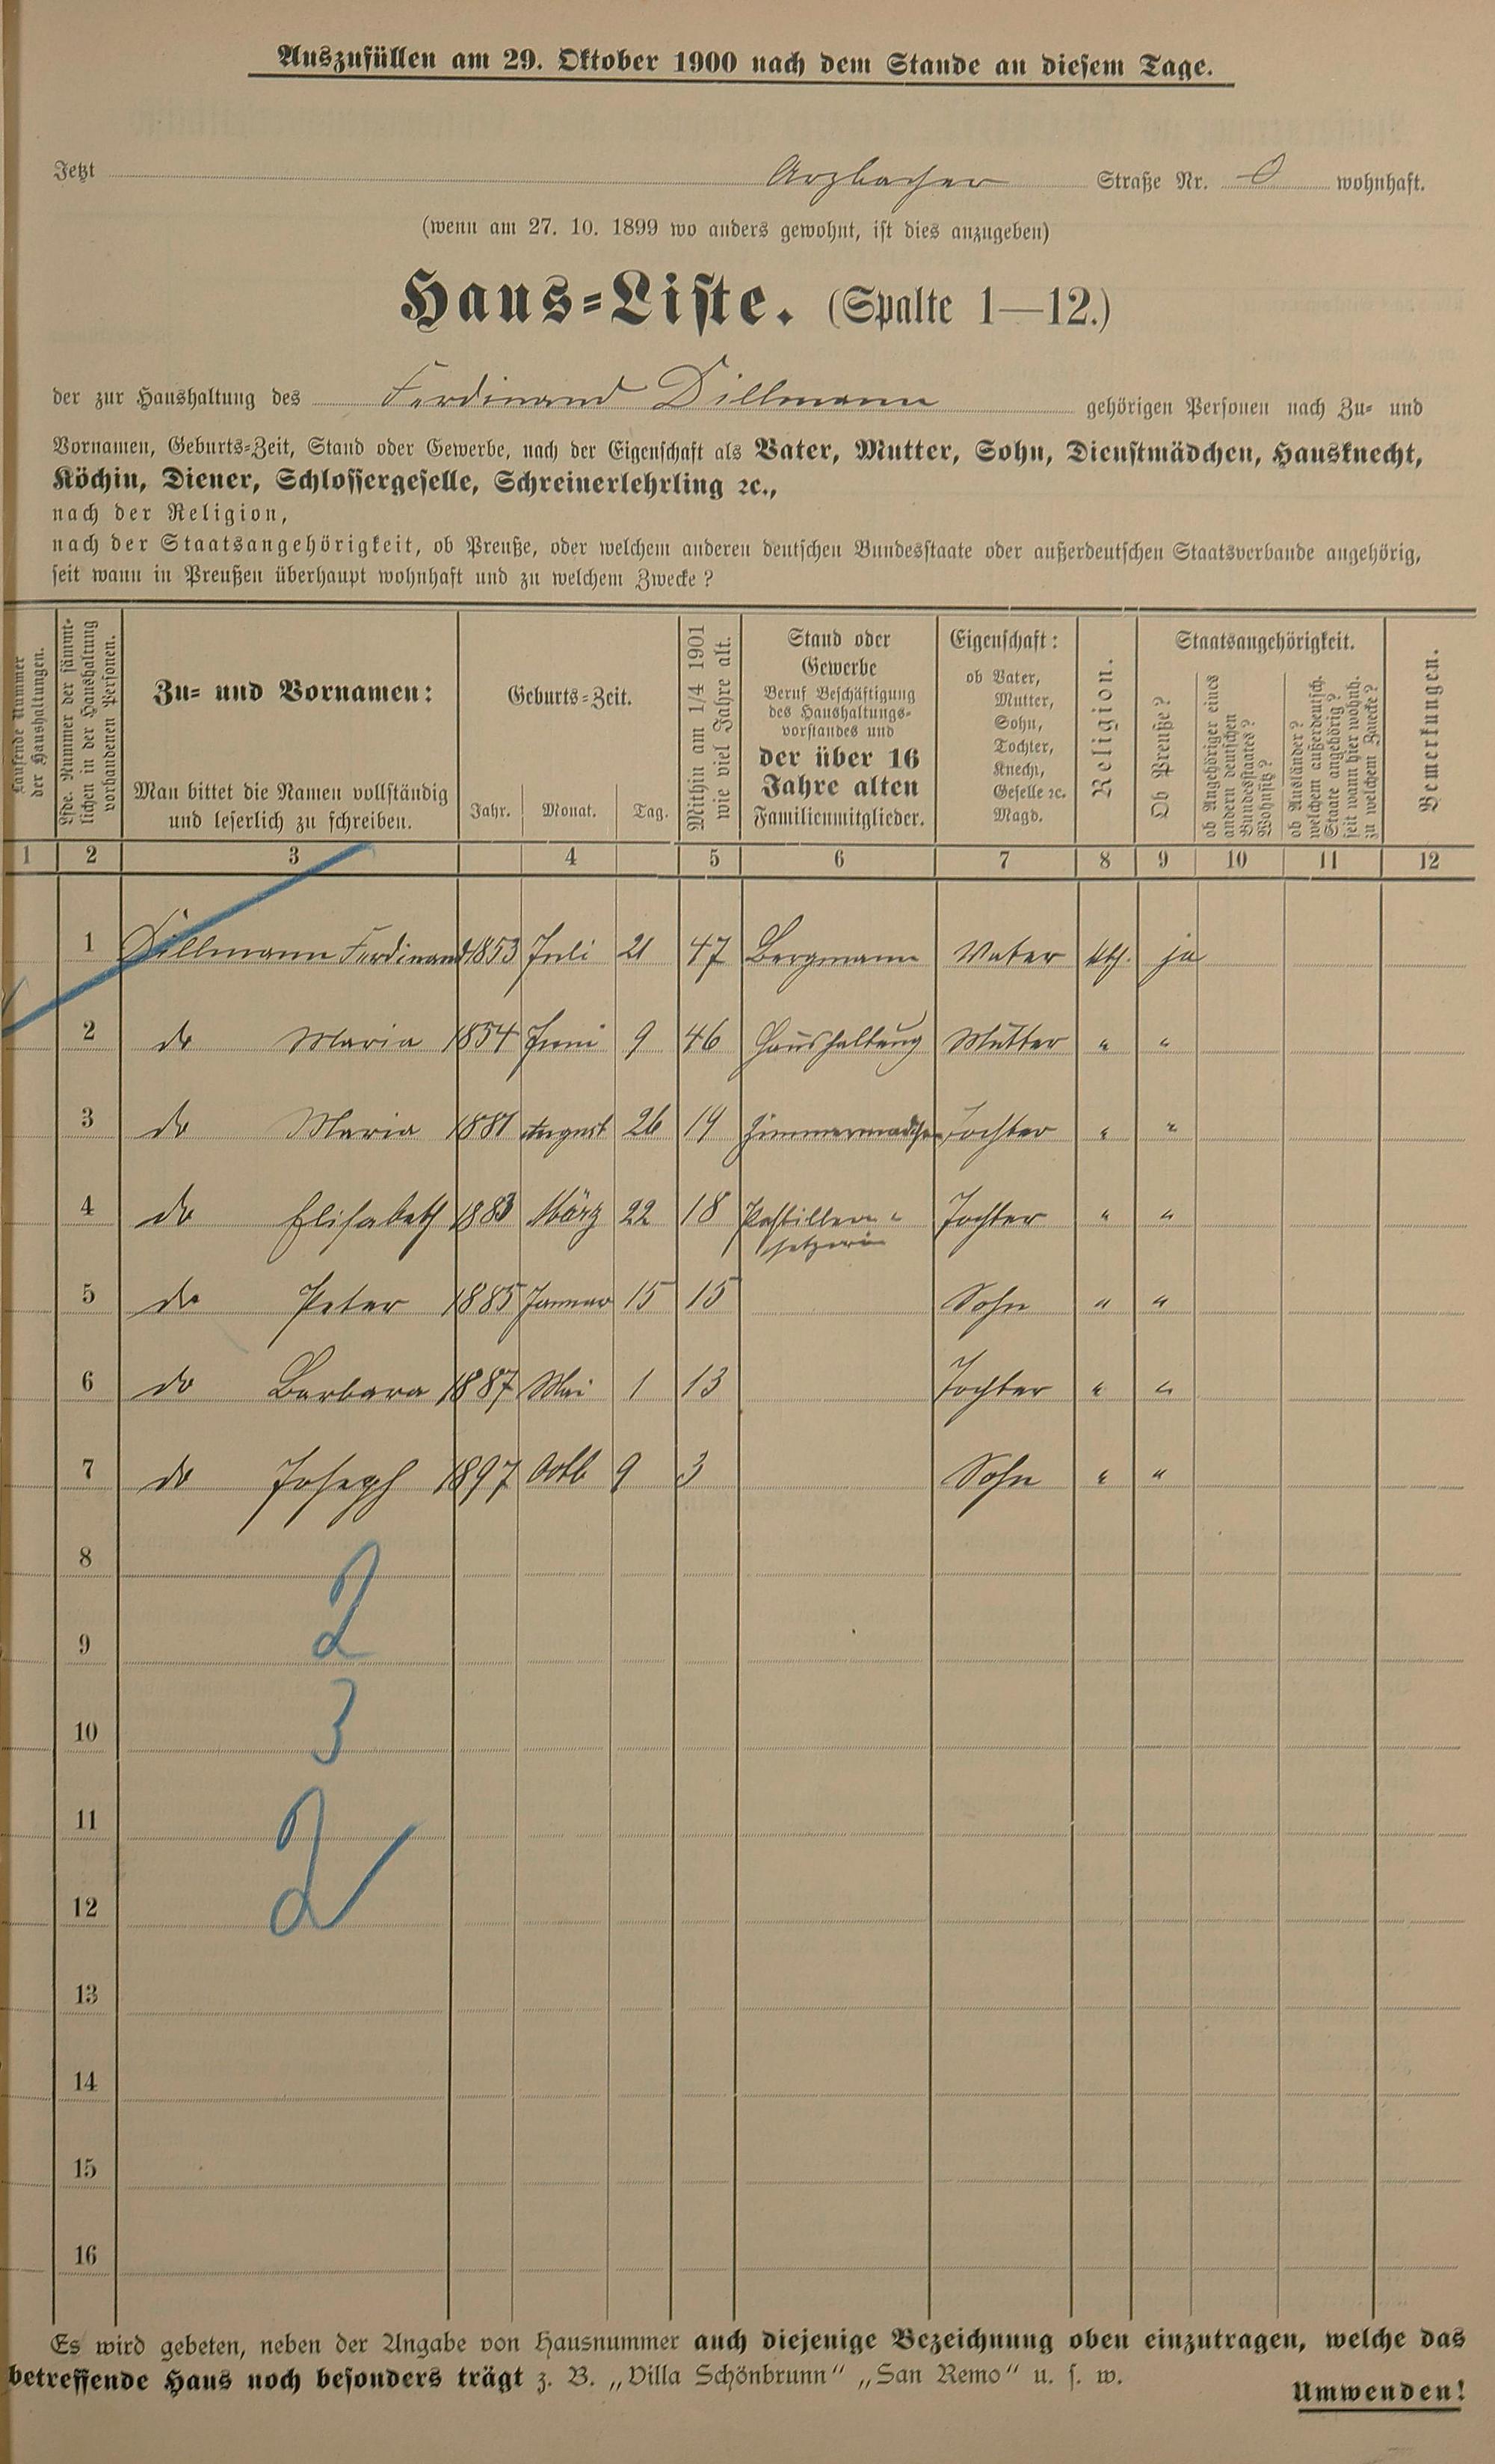 Auszufüllen am 29. Oktober 1900 nach dem Stande an diesem Tage.
Jetzt Arzbacher Straße Nr. 0 wohnhaft.
(wenn am 27. 10. 1899 wo anders gewohnt, ist dies anzugeben)
Haus-Liste. (Spalte 1—12.)
der zur Haushaltung des Ferdinand Dillmann gehörigen Personen nach Zu- und
Vornamen, Geburts-Zeit, Stand oder Gewerbe, nach der Eigenschaft als Vater, Mutter, Sohn, Dienstmädchen, Hausknecht,
Köchin, Diener, Schlossergeselle, Schreinerlehrling ꝛc.,
nach der Religion,
nach der Staatsangehörigkeit, ob Preuße, oder welchem anderen deutschen Bundesstaate oder außerdeutschen Staatsverbande angehörig,
seit wann in Preußen überhaupt wohnhaft und zu welchem Zwecke?
Laufende Nummer
der Haushaltungen.
Lfde. Nummer der sämmt-
lichen in der Haushaltung
vorhandenen Personen.
Zu- und Vornamen:
Man bittet die Namen vollständig
und leserlich zu schreiben.
Geburts-Zeit.
Jahr. Monat. Tag.
Mithin am 1/4 1901
wie viel Jahre alt.
Stand oder
Gewerbe
Beruf Beschäftigung
des Haushaltungs-
vorstandes und
der über 16
Jahre alten
Familienmitglieder.
Eigenschaft:
ob Vater,
Mutter,
Sohn,
Tochter,
Knecht,
Geselle ꝛc.
Magd.
Religion.
Staatsangehörigkeit.
Ob Preuße?
ob Angehöriger eines
andern deutschen
Bundesstaates?
Wohnsitz?
ob Ausländer?
welchem außerdeutsch.
Staate angehörig?
seit wann hier wohnh.
zu welchem Zwecke?
Bemerkungen.
1 2 3 4 5 6 7 8 9 10 11 12
1 Dillmann Ferdinand 1853 Juli 21 47 Bergmann Vater kth. ja
2 do Maria 1854 Juni 9 46 Haushaltung Mutter " "
3 do Maria 1881 August 26 19 Zimmermädchen Tochter " "
4 do Elisabeth 1883 März 22 18 Pastillen- Tochter " "
setzerin
5 do Peter 1885 Januar 15 15 Sohn " "
6 do Barbara 1887 Mai 1 13 Tochter " "
7 do Joseph 1897 Octb 9 3 Sohn " "
8
2
9
10 3
11
2
12
13
14
15
16
Es wird gebeten, neben der Angabe von Hausnummer auch diejenige Bezeichnung oben einzutragen, welche das
betreffende Haus noch besonders trägt z. B. „Villa Schönbrunn“ „San Remo“ u. s. w.
Umwenden!